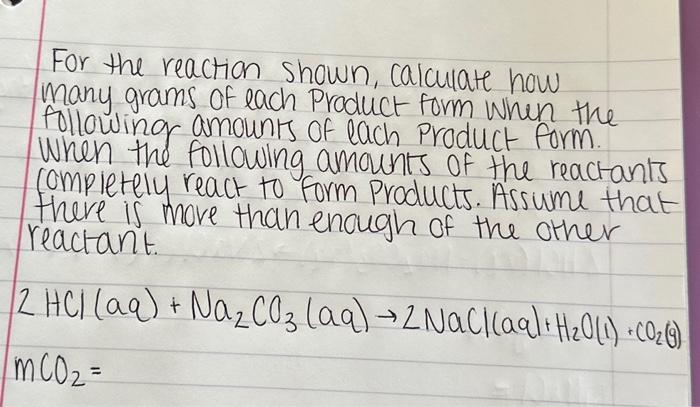 For the reaction shown, calculate how
many grams of each Product form when the
following amounts of each product form.
When the following amounts of the reactants
completely react to form Products. Assume that
there is more than enough of the other
reactant.
2 HCl (aq) + Na₂CO₃ (aq) → 2 NaCl(aq) + H₂O(l) + CO₂(g)
mCO₂ =